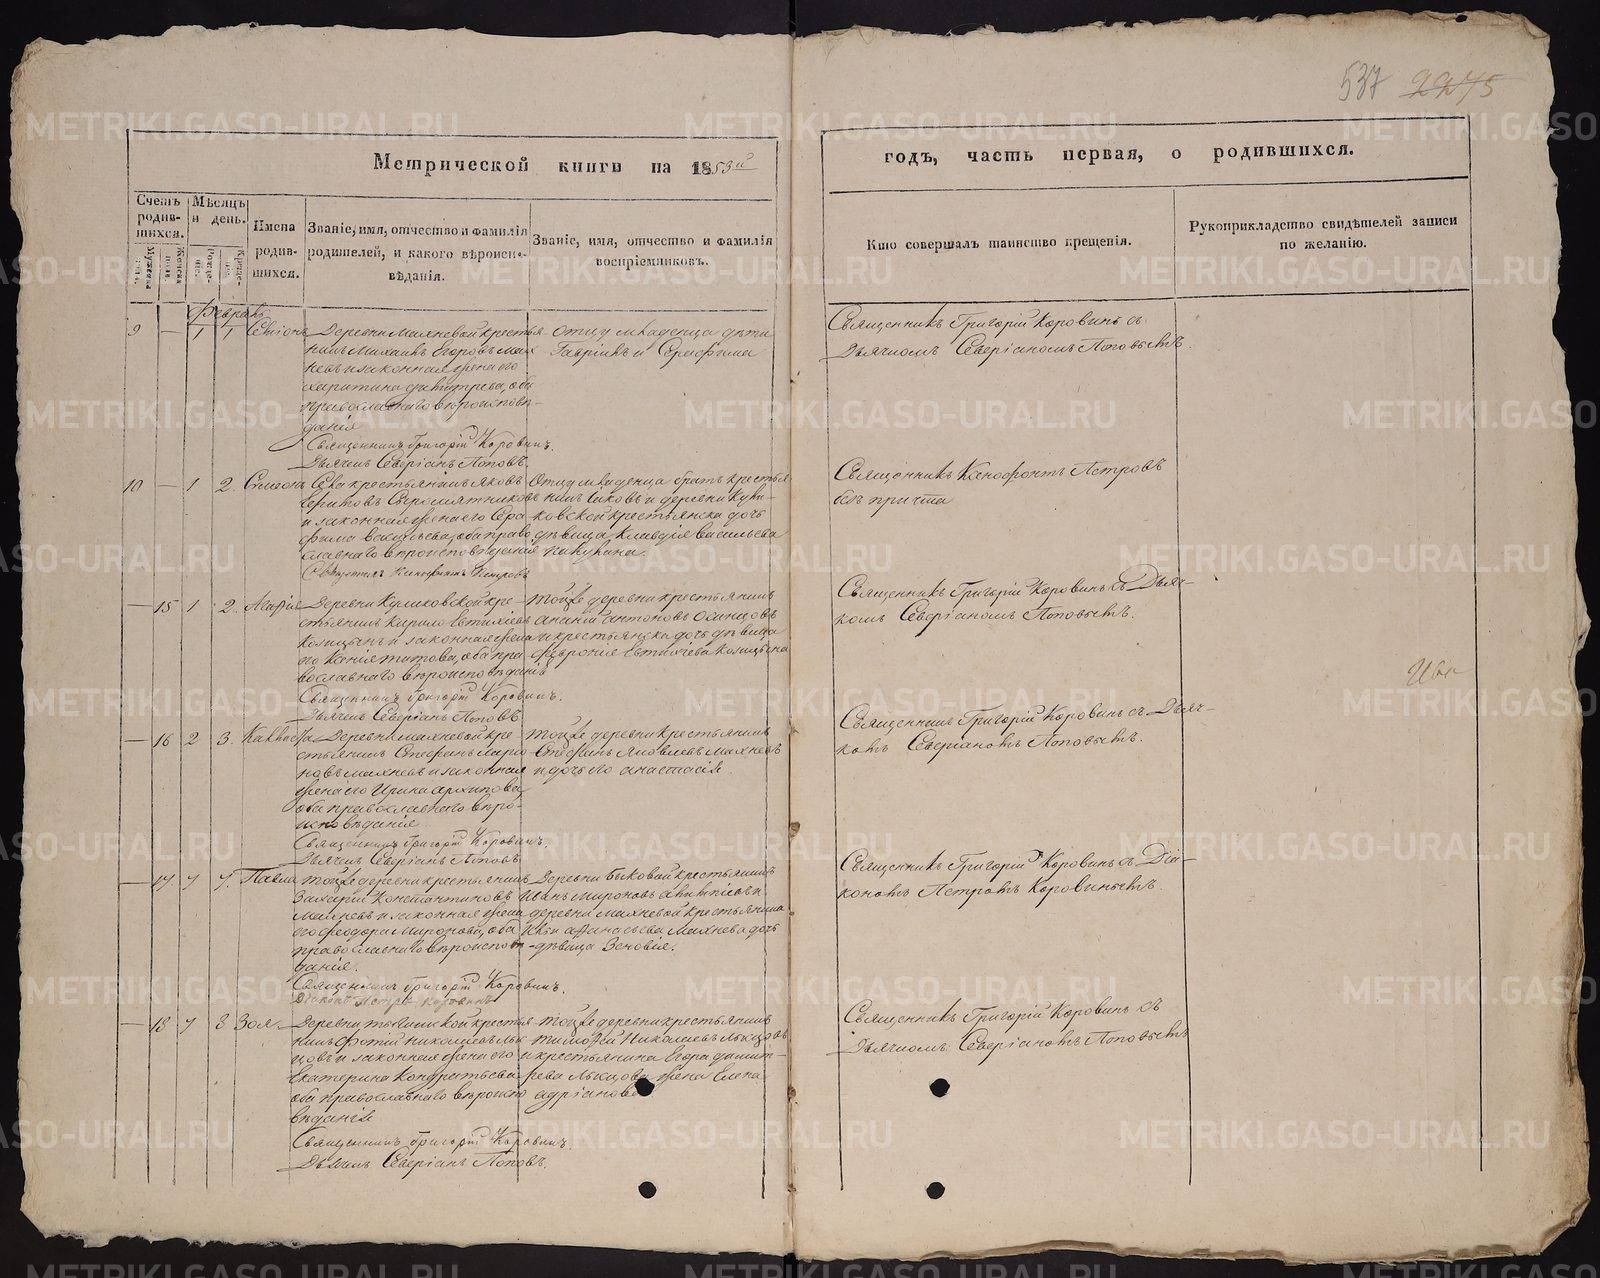 537 2275
Метрической книги на 1853й
годъ, часть первая, о родившихся.
Счетъ родив-шихся.
Мужеска пола.
Женска пола.
Мѣсяцъ и день.
Рожде-нія.
Креще-нія.
Имена родив-шихся.
Званіе, имя, отчество и фамилія
родителей, и какого вѣроиспо-
вѣданія.
Званіе, имя, отчество и фамилія
воспріемниковъ.
Кто совершалъ таинство крещенія.
Рукоприкладство свидѣтелей записи
по желанію.
Февраль
9 — 1 1
Деревни Махневой крестья-
нинъ Михаилъ Егоровъ Мах
невъ и законная жена его
Харитина Димитрева, оба
православнаго вѣроисповѣ-
данія
Священникъ Григорій Коровинъ.
Дьячекъ Северіанъ Поповъ.
Отцу младенца дѣти
Гавріилъ и Серафима
Священникъ Григорій Коровинъ съ
Дьячкомъ Северіаномъ Поповымъ.
10 — 1 2 Симеонъ
Села крестьянинъ Яковъ
Сыромятниковъ
и законная жена его Сера
фима Васильева, оба право
славнаго вѣроисповѣданія
Священникъ Ксенофонтъ Петровъ
Отцу младенца братъ крестья
нинъ и деревни Кули-
ковской крестьянска дочь
дѣвица Клавдія Васильева
Священникъ Ксенофонтъ Петровъ
безъ причта
— 15 1 2 Агафія
Деревни Куликовской кре-
стьянинъ Кирило Евтихіевъ
Козицынъ и законная жена
его Ксенія Титова, оба пра
вославнаго вѣроисповѣданія
Священникъ Григорій Коровинъ.
Дьячекъ Северіанъ Поповъ
Тойже деревни крестьянинъ
Ананій Антоновъ Одинцовъ
и крестьянска дочь дѣвица
Февронія Евтихіева Козицына
Священникъ Григорій Коровинъ съ Дьяч-
комъ Северіаномъ Поповымъ.
— 16 2 3
Деревни Махневой кре-
стьянинъ Стефанъ Ларіо
новъ Махневъ и законная
жена его Ирина Архипова,
оба православнаго вѣро-
исповѣданія
Священникъ Григорій Коровинъ.
Дьячекъ Северіанъ Поповъ
Тойже деревни крестьянинъ
Стефанъ Яковлевъ Махневъ
и дочь его Анастасія.
Священникъ Григорій Коровинъ съ Дьяч-
комъ Северіаномъ Поповымъ.
— 17 7 7. Павла
Тойже деревни крестьянинъ
Захарій Константиновъ
Махневъ и законная жена
его Феодора Миронова, оба
православнаго вѣроисповѣ-
данія.
Священникъ Григорій Коровинъ.
Діаконъ Петръ Коровинъ
Деревни Быковой крестьянинъ
Иванъ Мироновъ и
деревни Махневой крестьянина
Афанасьева Махнева дочь
дѣвица Зеновія.
Священникъ Григорій Коровинъ съ Діа-
кономъ Петромъ Коровинымъ.
— 18 7 8 Зоя.
Деревни крестья-
нинъ Фотій Николаевъ Лы
цовъ и законная жена его
Екатерина Кондратьева
оба православнаго вѣроиспо
вѣданія
Священникъ Григорій Коровинъ.
Дьячекъ Северіанъ Поповъ.
Тойже деревни крестьянинъ
Тимофей Николаевъ
и крестьянина Егора Димит-
рева жена Елена
Адріанова
Священникъ Григорій Коровинъ съ
Дьячкомъ Северіаномъ Поповымъ
METRIKI.GASO-URAL.RU